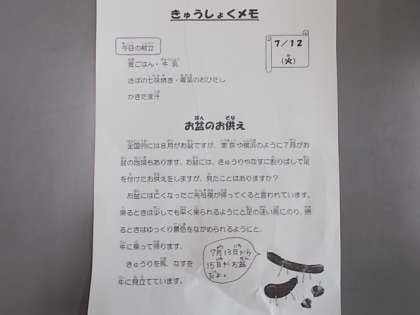 きゅうしょくメモ
今日の献立
7/12
(火)
麦ごはん・牛乳
さばの七味焼き・青菜のおひたし
かきたま汁
お盆のお供え
全国的には8月がお盆ですが、東京や横浜のように7月がお
盆の地域もあります。お盆には、きゅうりやなすに割りばしで足
を付けたお供えをしますが、見たことはありますか?
お盆には亡くなったご先祖様が帰ってくると言われています。
来るときは少しでも早く来られるようにと足の速い馬にのり、帰
るときはゆっくり景色をながめられるようにと、
牛に乗って帰ります。
きゅうりを馬、なすを
牛に見立てています。
7月13日から
15日がお盆
だよ。